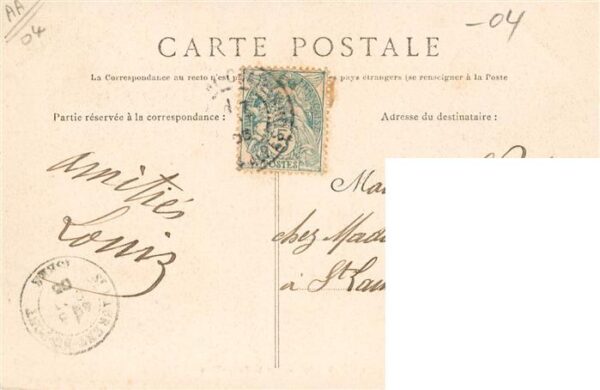 AA
04
-04
CARTE POSTALE
La Correspondance au recto n'est pa pays étrangers (se renseigner à la Poste
Partie réservée à la correspondance :
Adresse du destinataire :
POSTES
amitiés
Louis
Ma
chez Mad
à St Lau